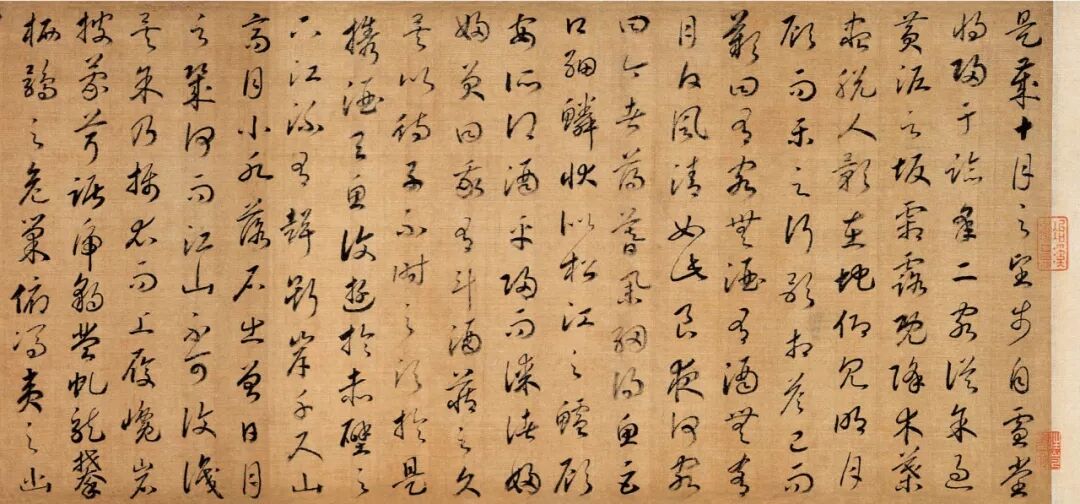 是歲十月之望步自雪堂
將歸于臨皋二客從予過
黃泥之坂霜露既降木葉
盡脫人影在地仰見明月
顧而樂之行歌相答已而
歎曰有客無酒有酒無肴
月白風清如此良夜何客
曰今者薄暮舉網得魚巨
口細鱗狀似松江之鱸顧
安所得酒乎歸而謀諸婦
婦曰我有斗酒藏之久
矣以待子不時之須於是
攜酒與魚復遊於赤壁之
下江流有聲斷岸千尺山
高月小水落石出曾日月
之幾何而江山不可復識
矣予乃攝衣而上履巉岩
披蒙茸踞虎豹登虬龍攀
栖鶻之危巢俯馮夷之幽